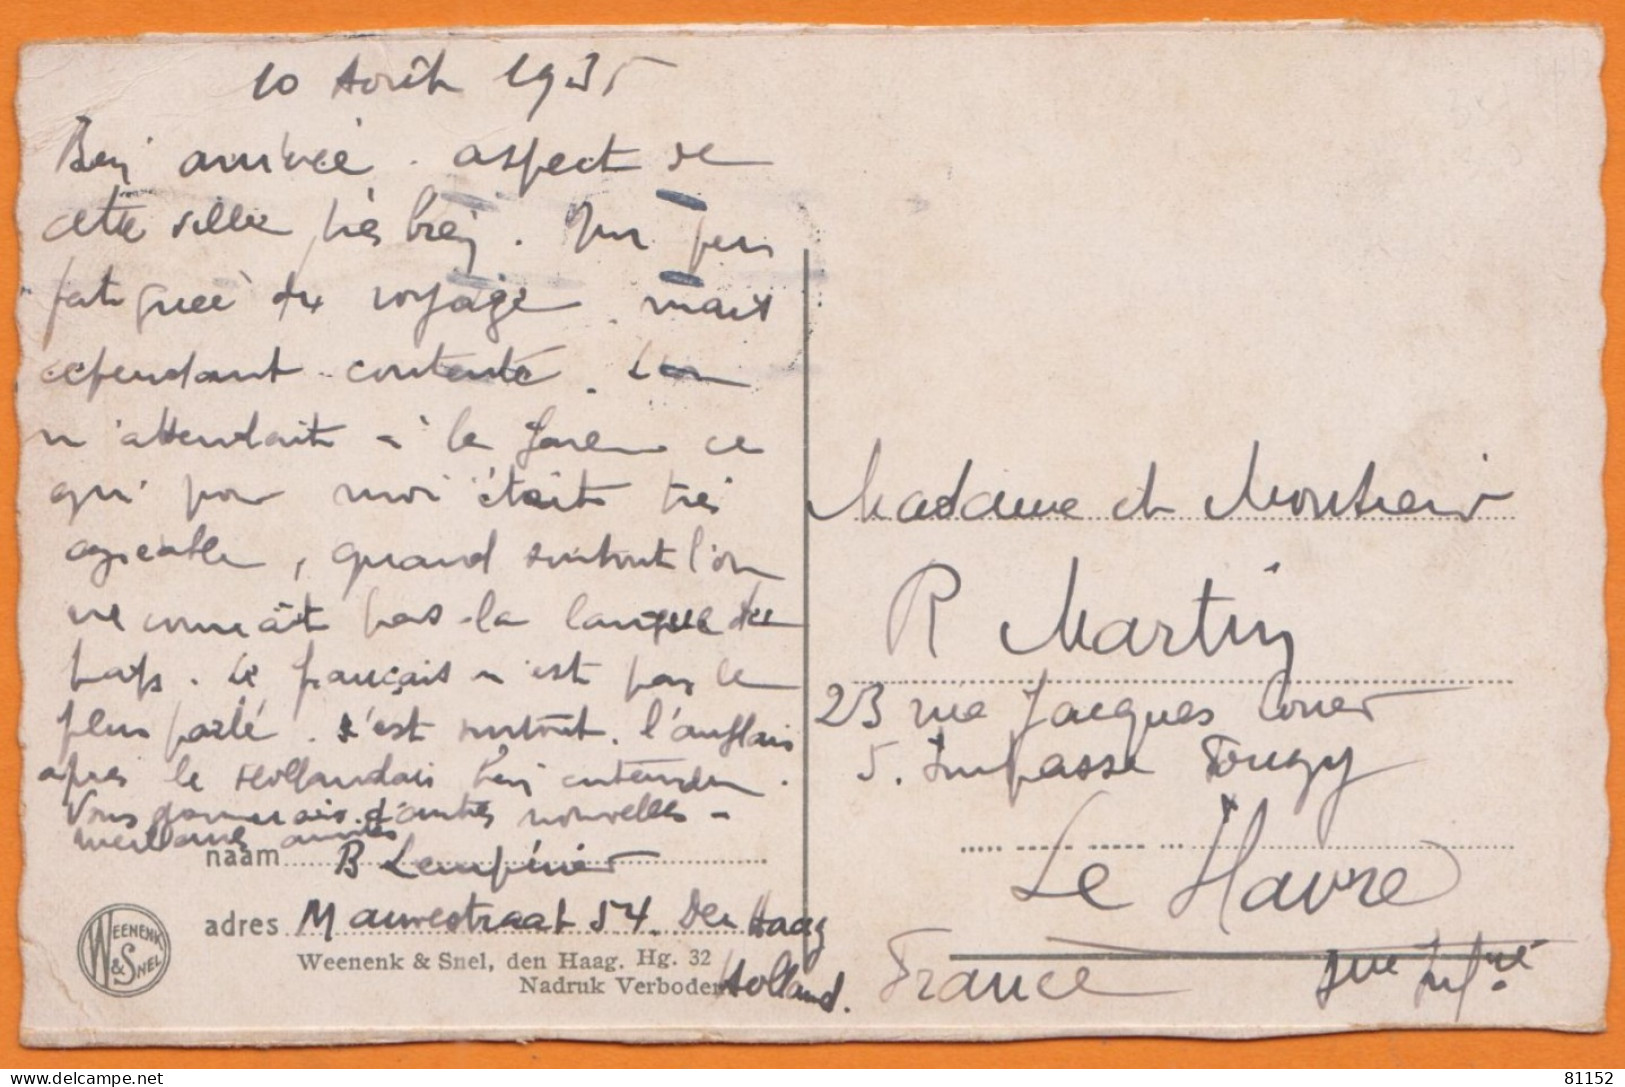 10 Août 1935
Bien arrivée. aspect de
cette ville très bien. Un peu
fatiguée du voyage. mais
cependant contente. L'on
m'attendait à la gare ce
qui pour moi était très
agréable, quand surtout l'on
ne connait pas la langue du
pays. Le français n'est pas le
plus parlé. c'est surtout l'anglais
après le Hollandais bien entendu.
Vous donnerais d'autres nouvelles -
meilleures amitiés
naam B
adres Mauvestraat 54. Den Haag
Holland.
WEENENK
& SNEL
Weenenk & Snel, den Haag. Hg. 32
Nadruk Verboden
Madame et Monsieur
R Martin
23 rue Jacques
5. Impasse
Le Havre
France
81152